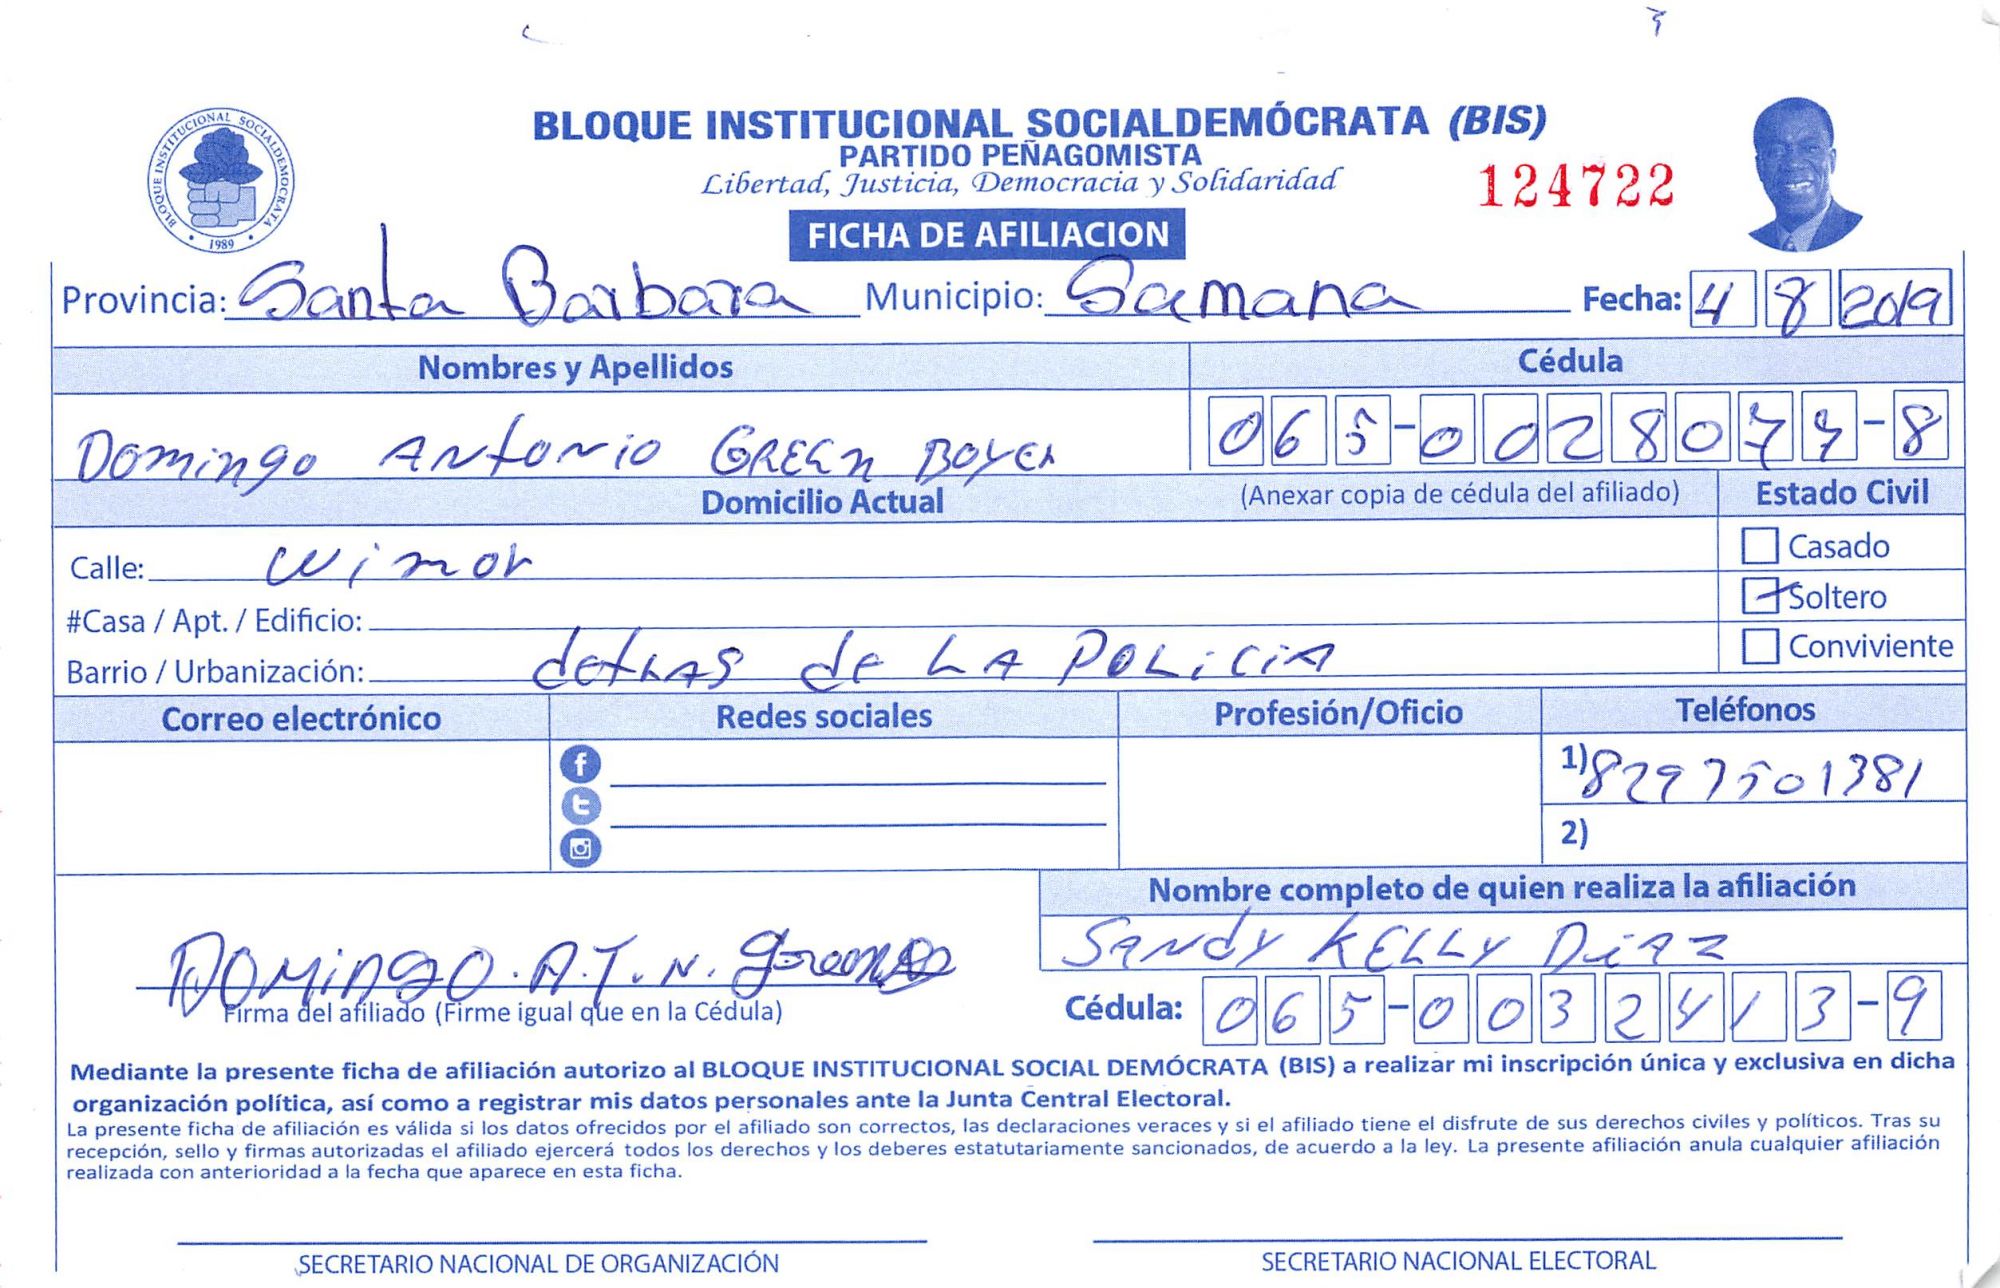 BLOQUE INSTITUCIONAL SOCIALDEMÓCRATA (BIS)
PARTIDO PEÑAGOMISTA
Libertad, Justicia, Democracia y Solidaridad
124722
BLOQUE INSTITUCIONAL SOCIALDEMOCRATA
1989
FICHA DE AFILIACION
Provincia: Santa Barbara Municipio: Samana Fecha: 4 8 2019
Nombres y Apellidos Cédula
Domingo Antonio GREEN BOYER 065-0028077-8
Domicilio Actual (Anexar copia de cédula del afiliado) Estado Civil
Calle: Casado
#Casa / Apt. / Edificio: Soltero
Barrio / Urbanización: detras de LA POLiCiA Conviviente
Correo electrónico Redes sociales Profesión/Oficio Teléfonos
1) 8297501381
2)
Nombre completo de quien realiza la afiliación
SANdy KELLY DiAZ
DOMingO. A.T.N.
Firma del afiliado (Firme igual que en la Cédula) Cédula: 065-0032413-9
Mediante la presente ficha de afiliación autorizo al BLOQUE INSTITUCIONAL SOCIAL DEMÓCRATA (BIS) a realizar mi inscripción única y exclusiva en dicha
organización política, así como a registrar mis datos personales ante la Junta Central Electoral.
La presente ficha de afiliación es válida si los datos ofrecidos por el afiliado son correctos, las declaraciones veraces y si el afiliado tiene el disfrute de sus derechos civiles y políticos. Tras su
recepción, sello y firmas autorizadas el afiliado ejercerá todos los derechos y los deberes estatutariamente sancionados, de acuerdo a la ley. La presente afiliación anula cualquier afiliación
realizada con anterioridad a la fecha que aparece en esta ficha.
SECRETARIO NACIONAL DE ORGANIZACIÓN SECRETARIO NACIONAL ELECTORAL